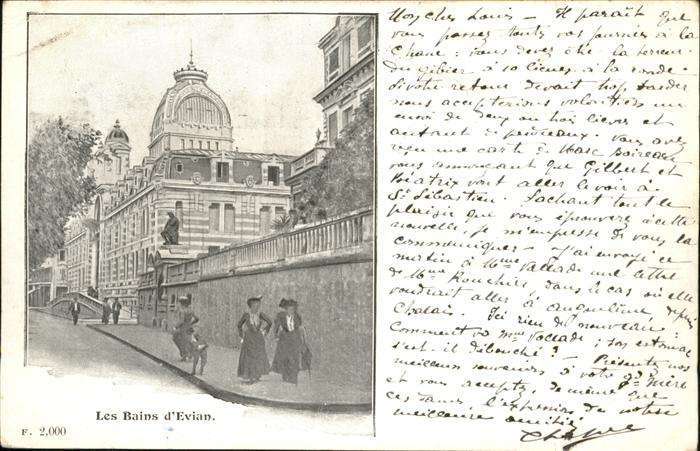 Mon cher Louis - Il paraît que
vous passez toutes vos journées à la
chasse : vous devez être la terreur
du gibier à 10 lieues à la ronde.
Si votre retour devait trop tarder
nous accepterions volontiers un
envoi de deux ou trois lièvres et
autant de perdreaux. Vous avez
reçu une carte de Marc
vous annonçant que Gilbert et
Béatrix vont aller le voir à
St Sébastien. Sachant tout le
plaisir que vous éprouverez à cette
nouvelle, je m'empresse de vous la
communiquer - J'ai envoyé ce
matin à Mme Vallade une lettre
de Mme Rouchier, dans le cas où elle
voudrait aller à Angoulême, depuis
Chalais. Ici rien de nouveau :
Comment va Mme Vallade ; son estomac
s'est-il débouché ? - Présentez nos
meilleurs souvenirs à votre Gd Mère
et vous acceptez, de même que
ces dames l'expression de notre
meilleure amitié
Les Bains d'Evian.
F. 2,000